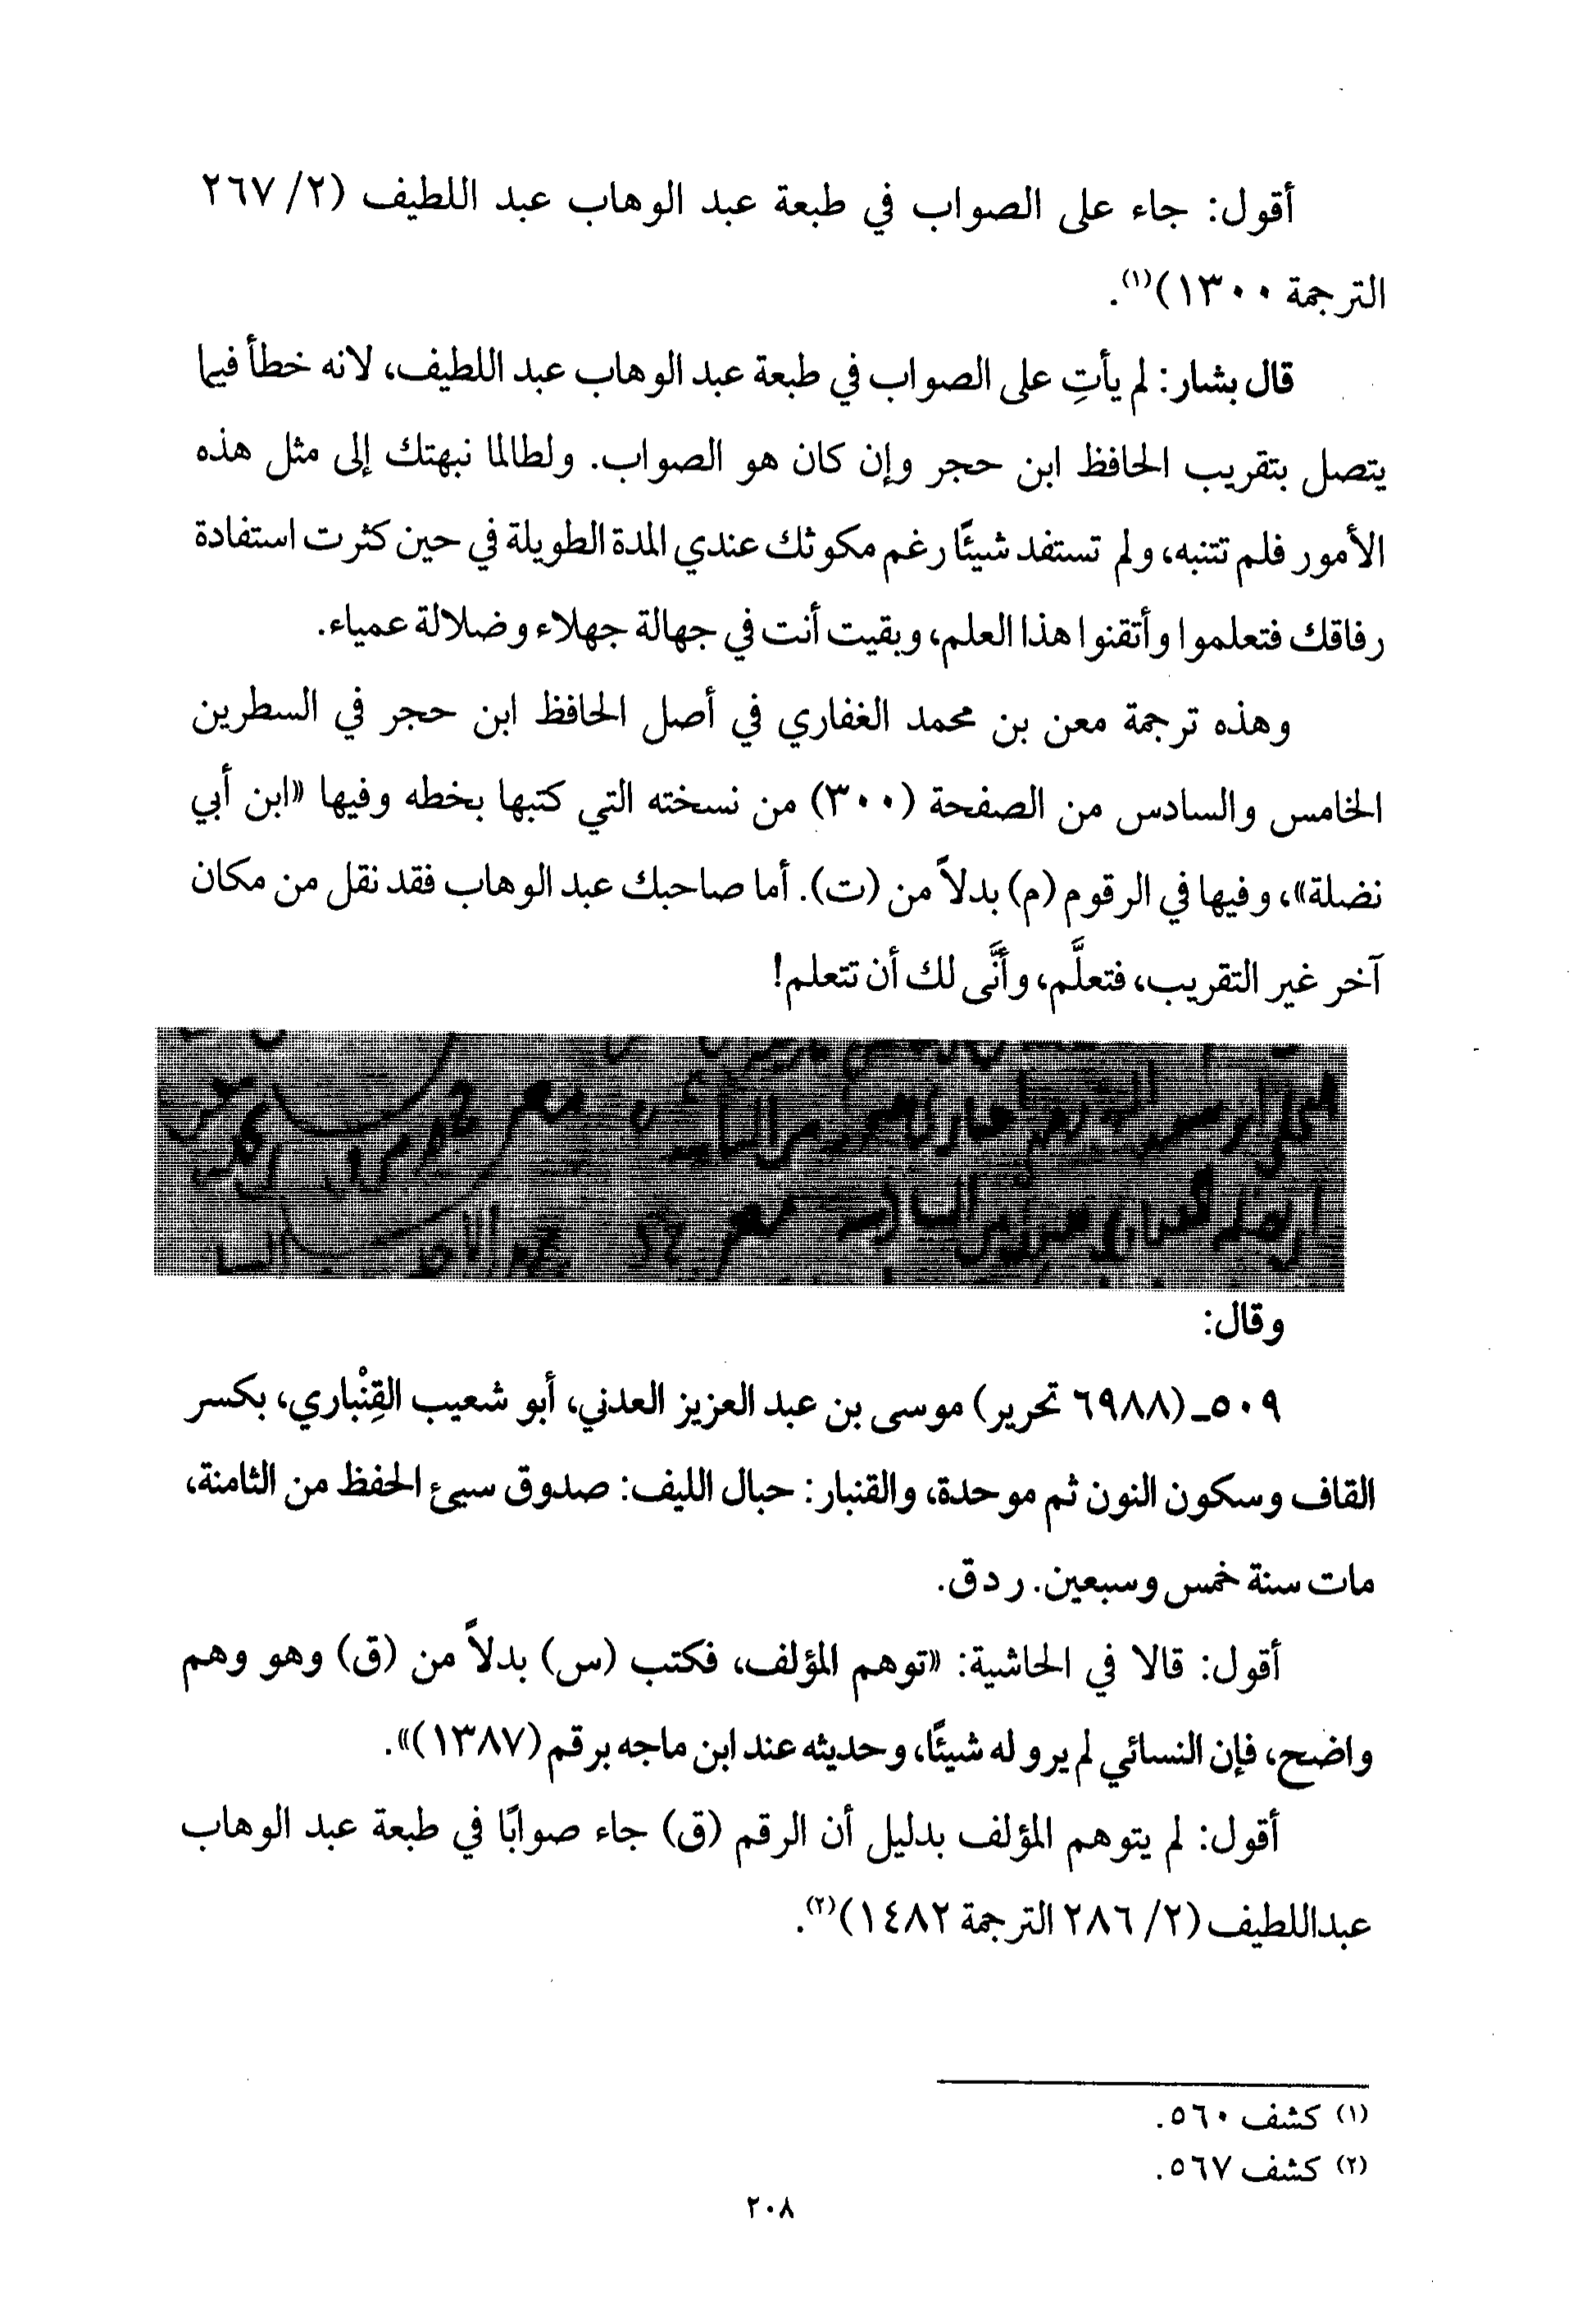 أقول: جاء على الصواب في طبعة عبد الوهاب عبد اللطيف (٢/ ٢٦٧
الترجمة ١٣٠٠)(١).
قال بشار: لم يأتِ على الصواب في طبعة عبد الوهاب عبد اللطيف، لانه خطأ فيما
يتصل بتقريب الحافظ ابن حجر وإن كان هو الصواب. ولطالما نبهتك إلى مثل هذه
الأمور فلم تتنبه، ولم تستفد شيئًا رغم مكوثك عندي المدة الطويلة في حين كثرت استفادة
رفاقك فتعلموا وأتقنوا هذا العلم، وبقيت أنت في جهالة جهلاء وضلالة عمياء.
وهذه ترجمة معن بن محمد الغفاري في أصل الحافظ ابن حجر في السطرين
الخامس والسادس من الصفحة (٣٠٠) من نسخته التي كتبها بخطه وفيها «ابن أبي
نضلة»، وفيها في الرقوم (م) بدلاً من (ت). أما صاحبك عبد الوهاب فقد نقل من مكان
آخر غير التقريب، فتعلَّم، وأنَّى لك أن تتعلم!
وقال:
٥٠٩ـ (٦٩٨٨ تحرير) موسى بن عبد العزيز العدني، أبو شعيب القِنْباري، بكسر
القاف وسكون النون ثم موحدة، والقنبار: حبال الليف: صدوق سيئ الحفظ من الثامنة،
مات سنة خمس وسبعين. ر د ق.
أقول: قالا في الحاشية: «توهم المؤلف، فكتب (س) بدلاً من (ق) وهو وهم
واضح، فإن النسائي لم يرو له شيئًا، وحديثه عند ابن ماجه برقم (١٣٨٧)».
أقول: لم يتوهم المؤلف بدليل أن الرقم (ق) جاء صوابًا في طبعة عبد الوهاب
عبداللطيف (٢/ ٢٨٦ الترجمة ١٤٨٢)(٢).
(١) كشف ٥٦٠.
(٢) كشف ٥٦٧.
٢٠٨